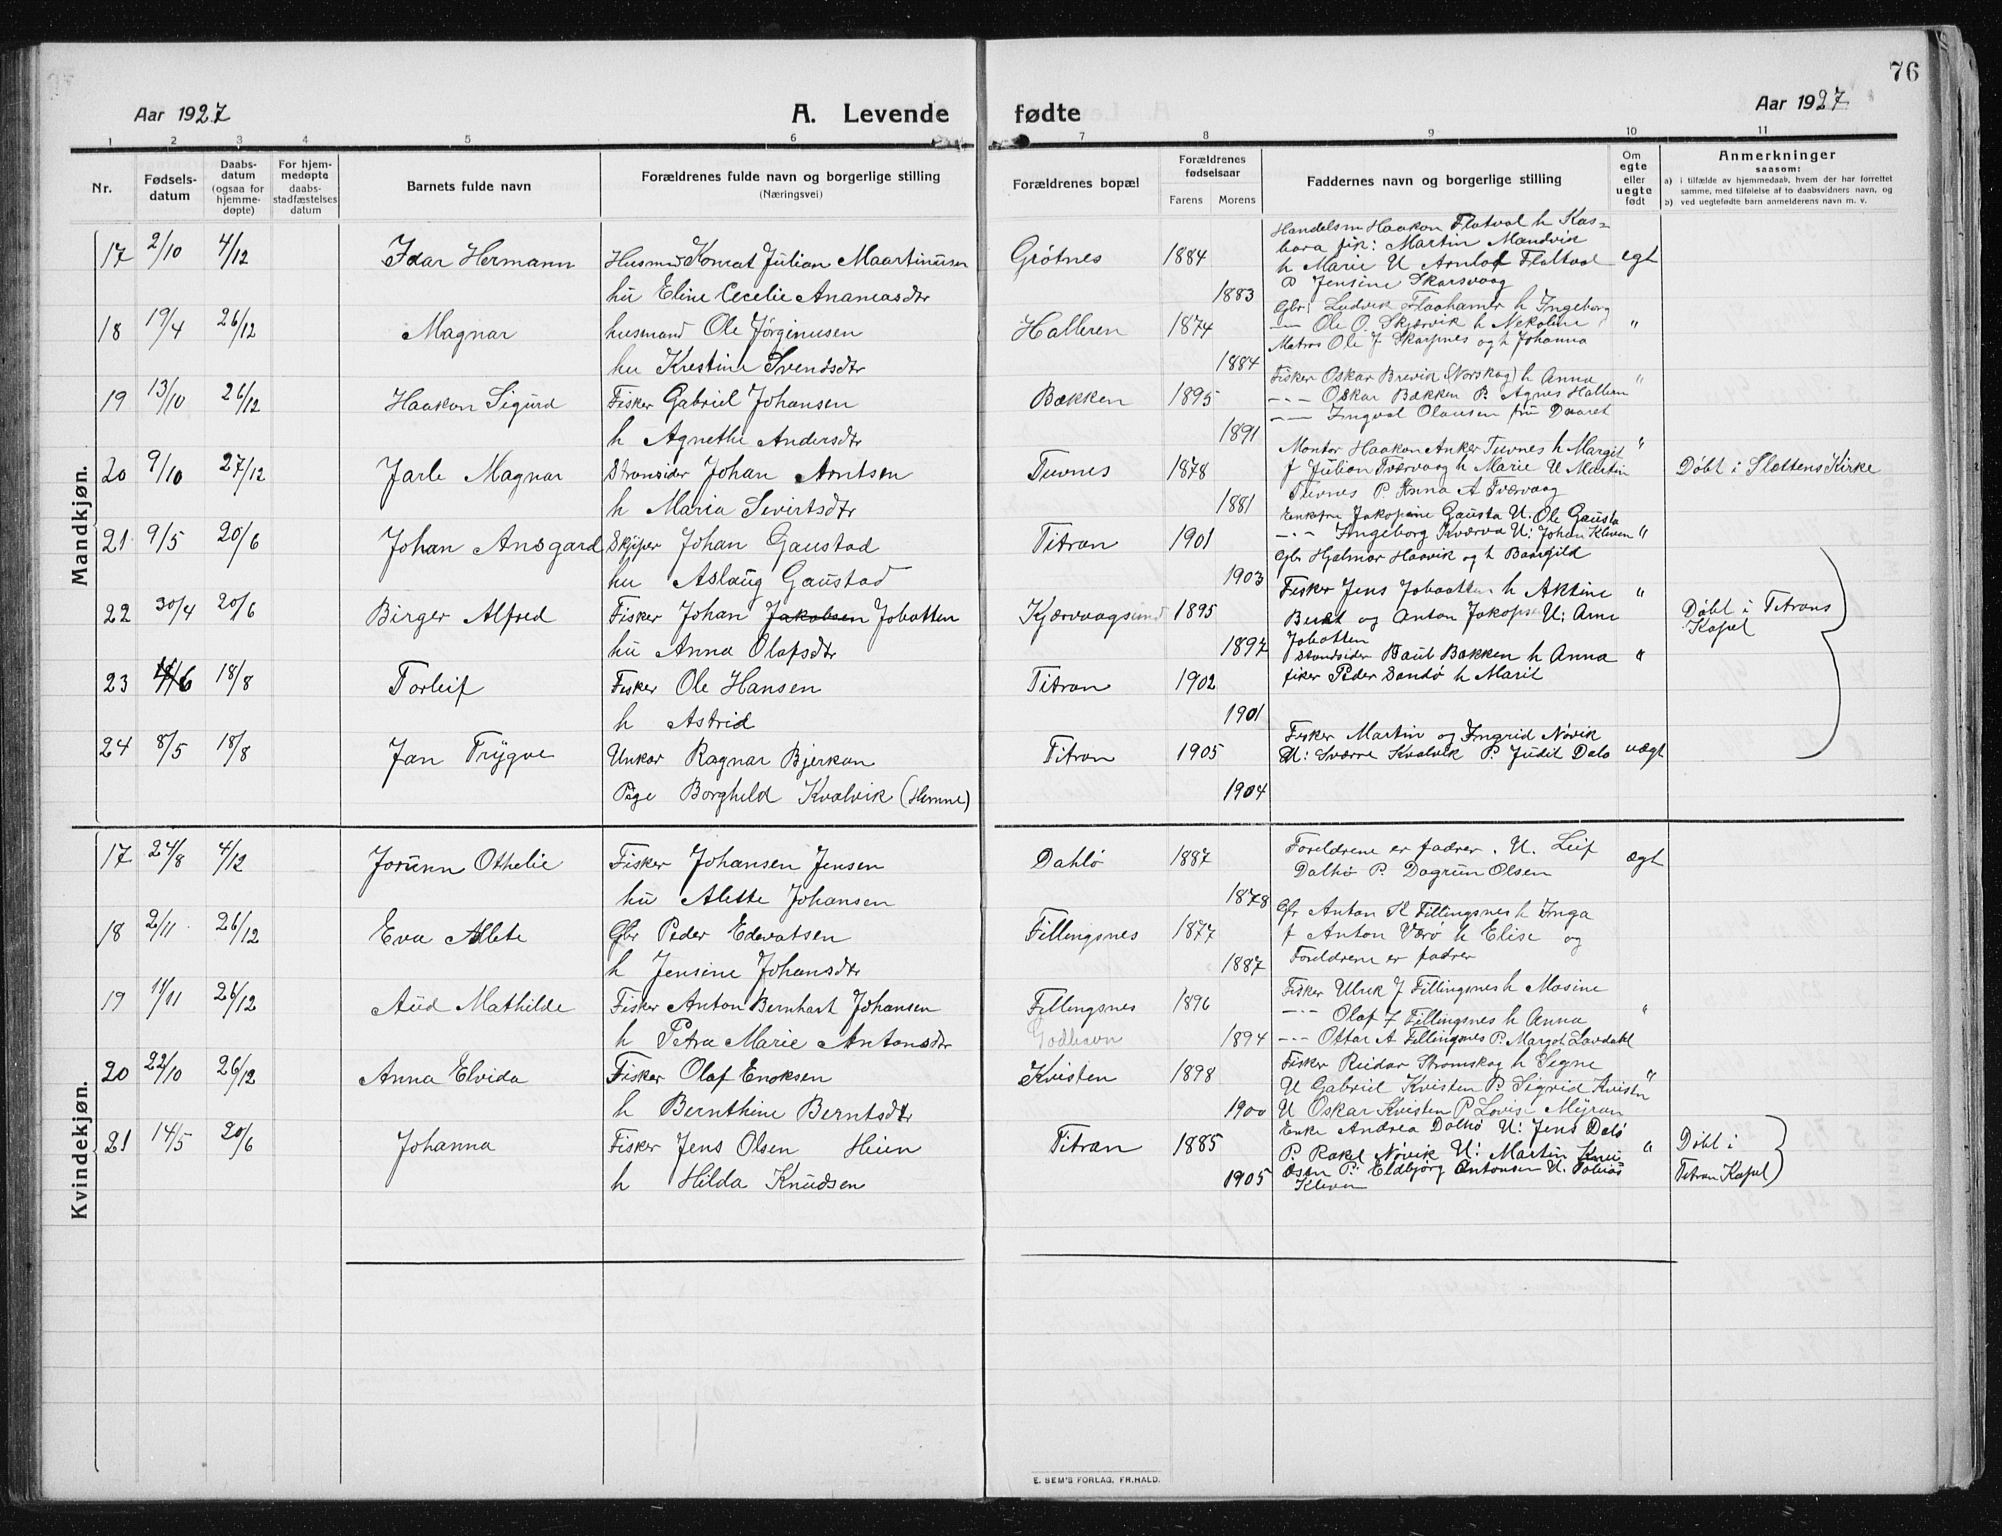 76
Aar 1927
A. Levende
fødte
Aar 1927
1 2 3 4 5 6 7 8 9 10 11
Nr.
Fødsels-
datum
Daabs-
datum
(ogsaa for
hjemme-
døpte)
For hjem-
medøpte
daabs-
stadfæstelses
datum
Barnets fulde navn
Forældrenes fulde navn og borgerlige stilling
(Næringsvei)
Forældrenes bopæl
Forældrenes
fødselsaar
Farens Morens
Faddernes navn og borgerlige stilling
Om
egte
eller
uegte
født
Anmerkninger
saasom:
a) i tilfælde av hjemmedaab, hvem der har forrettet
samme, med tilføielse af to daabsvidners navn, og
b) ved uegtefødte barn anmelderens navn m. v.
Mandkjøn.
17 2/10 4/12 Hermann Julian Maartinusen Grøtnes 1884 egt
Handelsm Haakon Flatval h Kas-
bara fik: Martin Mandvik
h Marie U Arnlof Flatval
P Jensine Skarsvaag
hu Eline Cecelie Ananiasdtr 1883
18 19/4 26/12 Magnar husmand Ole Jørginusen Halleren 1874 "
Gbr: Ludvik Flaahamer h Ingeborg
—"— Ole O. Skjærvik h Nekoline
Matros Ole J Skarpnes og h Johanna
hu Krestine Svendsdtr 1884
19 13/10 26/12 Haakon Sigurd Fisker Gabriel Johansen Bækken 1895 "
Fisker Oskar Brevik (Norskag) h Anna
—"— Oskar Bækken P. Agnes Hallern
—"— Ingval Olausen fru Daaret
h Agnethe Andersdtr 1891
20 9/10 27/12 Jarle Magnar Johan Arntsen Tuvnes 1878 " Døbt i Slettens Kirke
Montør Haakon Anker Tuvnes h Margit
f Julian Tværvaag h Marie U Martin
Tuvnes P. Anna A Tværvaag
h Maria Sivertsdtr 1881
21 9/5 20/6 Johan Ansgard Skipper Johan Gaustad Titran 1901 "
Enkefru Jakopine Gausta U. Ole Gausta
—"— Ingeborg Kværva U: Johan Kleven
Gbr Hjalmar Haavik og h Baargild
hu Aslaug Gaustad 1903
22 30/4 20/6 Birger Alfred Fisker Johan Jakobsen Jobotten Kjærvaagsund 1895 "
Fisker Jens Jobotten h Aktine
og Anton U: Arne
Jobotten
hu Anna Olafsdtr 1897
Døbt i Titrans
Kapel
23 18/8 Torleif Fisker Ole Hansen Titran 1902 "
Strandsider Paul Bakken h Anna
fiker Peder Sandø h Marit
h Astrid 1901
24 8/5 18/8 Jan Trygve Unkar Ragnar Bjerkan Titran 1905 uægt
Fisker Martin og Ingrid Nøvik
U: Sværre Kvalvik P. Judit Dalø
Pige Borghild Kvalvik (Hemne) 1904
Kvindekjøn.
17 24/8 4/12 Jorunn Othelie Fisker Johansen Jensen Dahlø 1887 ægt
Foreldrene er fadrer. U. Leif
Dalhø P. Dagrun Olsen
hu Alette Johansen 1878
18 2/11 26/12 Eva Allete Gbr Peder Edevatsen Fillingsnes 1877
Gbr Anton K Fillingsnes h Inga
f Anton Værø h Elise og
Foreldrene er fadrer
h Jensine Johansdtr 1887
19 11/11 26/12 Aud Mathilde Fisker Anton Bernhart Johansen Fillingsnes 1896 "
Fisker Ulrik J Fillingsnes h Masine
—"— Olaf J Fillingsnes h Anna
—"— Ottar A Fillingsnes P. Margot Lavdahl
h Petra Marie Antonsdtr Godhavn 1894
20 22/10 26/12 Anna Elvida Fisker Olaf Enoksen Kvisten 1898 "
Fisker Reidar Strømskag h Signe
U Gabriel Kvisten P. Sigrid Kvisten
U Oskar Kvisten P Lovise Myran
h Bernthine Berntsdtr 1900
21 14/5 20/6 Johanna Fisker Jens Olsen Heien Titran 1885 "
Enke Andrea Dalhø U: Jens Dalø
P. Rakel Nøvik U: Martin
P. Eldbjørg Antonsen U. Tobias
Kleven
h Hilda Knudsen 1905
Døbt i
Titran Kapel
E. SEM'S FORLAG, FR.HALD.